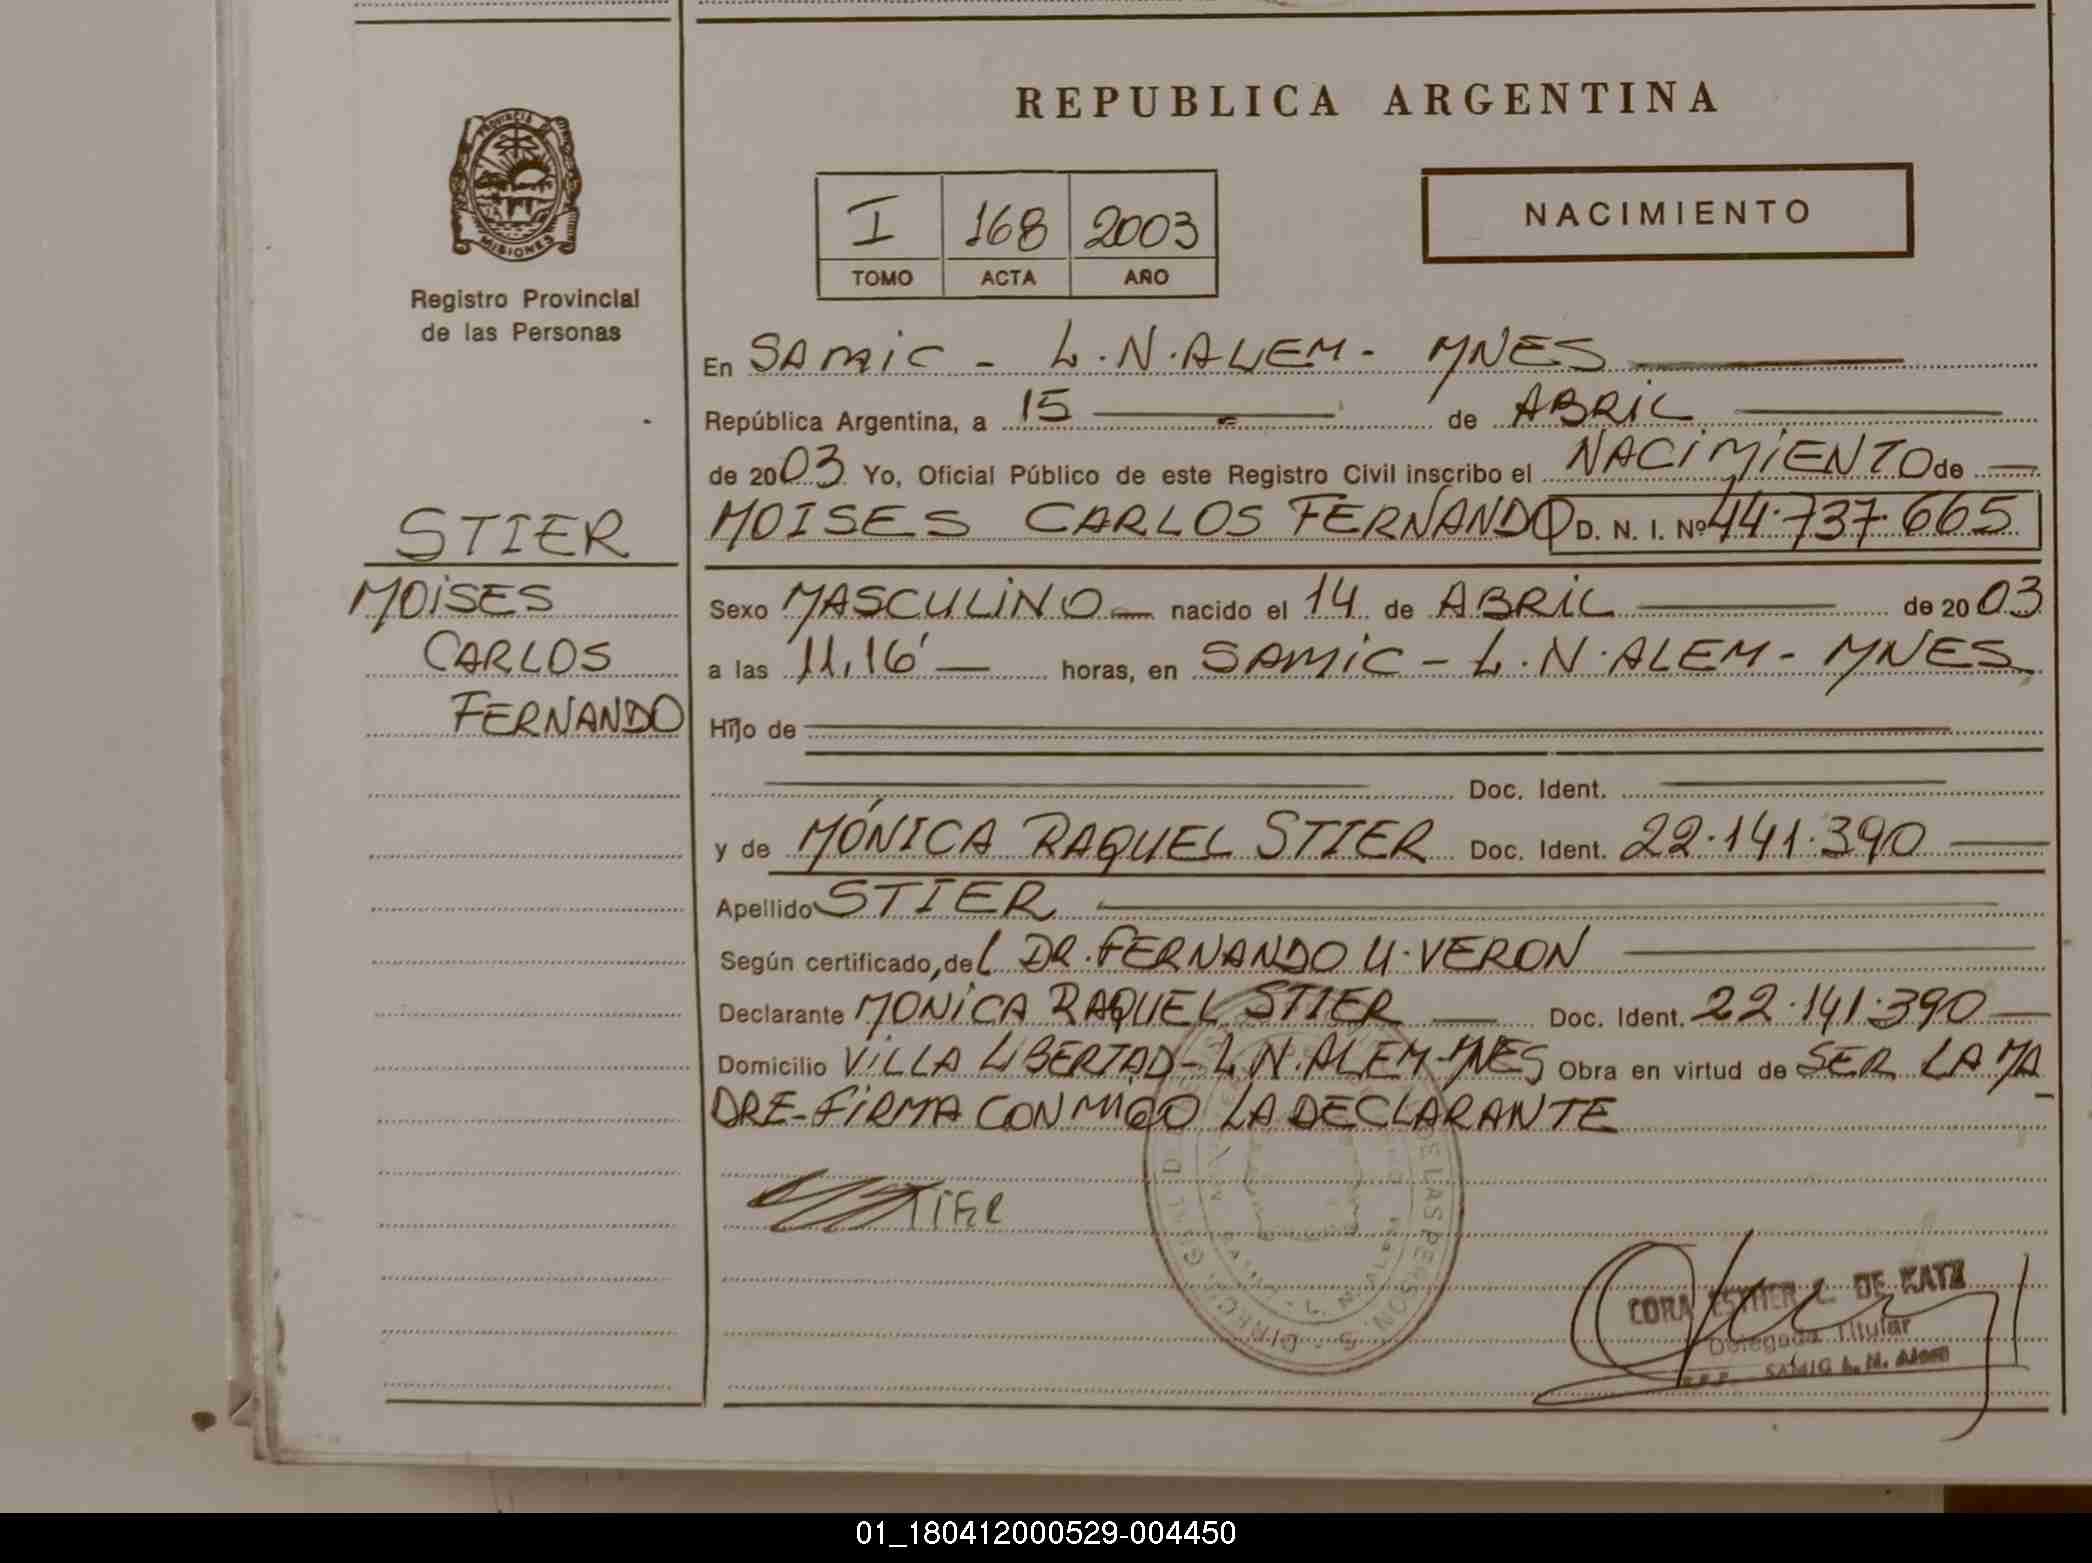 REPUBLICA ARGENTINA
PROVINCIA DE
MISIONES
Registro Provincial
de las Personas
I 168 2003
TOMO ACTA AÑO
NACIMIENTO
En SAMIC - L.N.ALEM - MNES
República Argentina, a 15 de ABRIL
de 2003 Yo, Oficial Público de este Registro Civil inscribo el NACIMIENTO de
MOISES CARLOS FERNANDO D. N. I. Nº 44.737.665
STIER
MOISES
CARLOS
FERNANDO
Sexo MASCULINO nacido el 14 de ABRIL de 2003
a las 11,16' horas, en SAMIC - L.N.ALEM - MNES
Hijo de
Doc. Ident.
y de MÓNICA RAQUEL STIER Doc. Ident. 22.141.390
Apellido STIER
Según certificado, del DR. FERNANDO U. VERON
Declarante MONICA RAQUEL STIER Doc. Ident. 22.141.390
Domicilio VILLA LIBERTAD - L.N.ALEM - MNES Obra en virtud de SER LA MA
DRE - FIRMA CONMIGO LA DECLARANTE
STIER
CORA ESTHER L. DE KATZ
Delegada Titular
R.P.P. SAMIC L. N. Alem
01_180412000529-004450